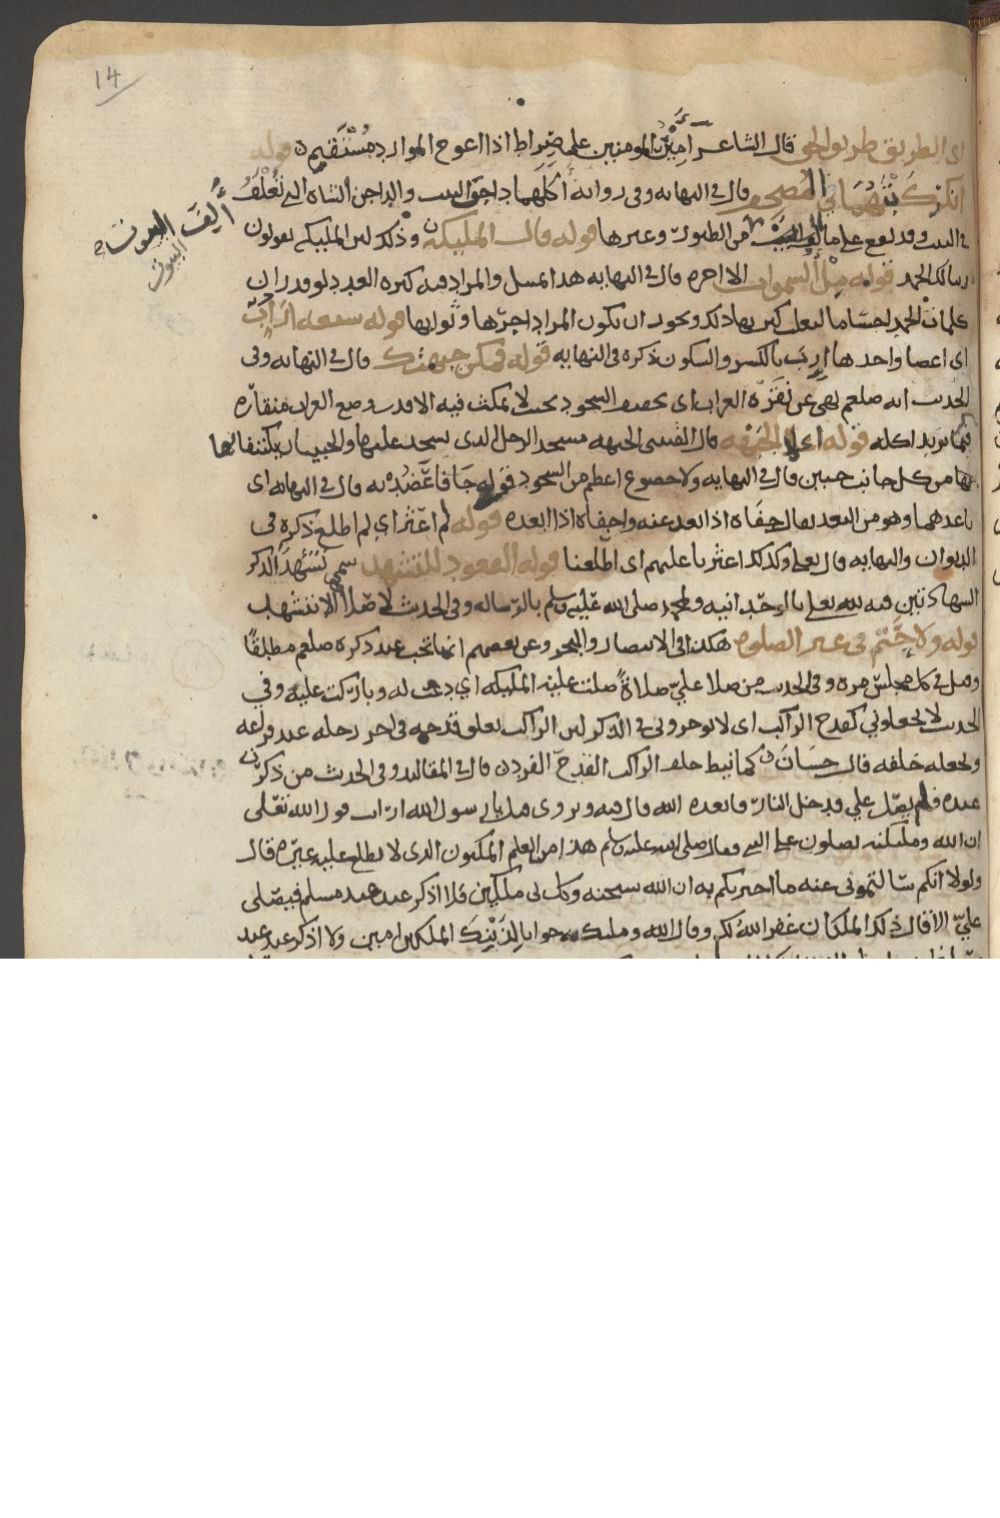 14
اى الطريق طريق الحق قال الشاعر اميْر المومنين على صِراط اذا اعوج الموارد مُسْتَقيم قوله
كتبتُهما في المصحف قال فى النهايه وفى روايه أكلها داجن البيت والداجن الشاة التى تُعْلَف
فى البيت وقد يقع على ما ألف البيت من الطيور وغيرها قوله قالت المليكه وذلك لان المليكه يقولون
أَلِفَ البيوت
البيوت
ربنا لك الحمد قوله مِلْأ السموات الا اخره قال فى النهايه هذا تمثيل والمراد به كثرة العدد يقول لو قدر ان
كلمات الحمد اجسامًا لبلغ كثرتها ذلك ويجوز ان يكون المراد اجرها وثوابها قوله سبعه ارَاب
اى اعضا واحدها اِرب بالكسر والسكون ذكره فى النهايه قوله فمكن جبهتك قال فى النهايه وفى
الحديث انه صلعم نهى عن نَقرَة الغراب اى تخفيف السجود بحيث لا يمكث فيه الا قدر وضع الغراب منقاره
فيما يريد اكله قوله اعلا الجبهه قال القتيبى الجبهه مسجد الرجل الذى يسجد عليها والجبينان يكتنفانها
من كل جانب جبين قال فى النهايه ولا خضوع اعظم من السجود قوله جَافَا عَضُدَيْه قال فى النهايه اى
باعدهما وهو من البعد يقال جفَاه اذا بعد عنه واجفاه اذا ابعده قوله لم اعثر اى لم اطلع ذكره فى
الديوان والنهايه قال تعلى وكذلك اعثرنا عليهم اى اطلعنا قوله القعود للتشهد سمى تَشَهُّدَ الذكر
الشهادتين فيه لله تعلى بالوحدانيه ولمحمد صلى الله عليه وسلم بالرساله وفى الحديث لا صلاة الا بتشهد
قوله ولا حَتْم فى غير الصلوه هكذا فى الانتصار والبحر وعن بعضهم انها تجب عند ذكره صلعم مطلقًا
وقيل فى كل مجلس مره وفى الحديث من صلا علىّ صلاةً صلت عليه المليكه اى دعت له وباركت عليه وفى
الحديث لا تجعلونى كقدح الراكب اى لا توخرونى فى الذكر لان الراكب يعلق قدحه فى اخر رحله عند فراغه
ويجعله خلفه قال حسان كما نيط خلف الراكب القدح الفرد قال فى المقاليد وفى الحديث من ذكرت
عنده فلم يصل علي فدخل النار فابعده الله قال فيه ويروى قيل يا رسول الله ارايت قول الله تعلى
ان الله ومليكته يصلون على النبى فقال صلى الله عليه وسلم هذا من العلم المكنون الذى لا يطلع عليه غيره قال
ولولا انكم سَالتمونى عنه ما اخبرتكم به ان الله سبحنه وكل لى ملكين فلا اذكر عند عبد مسلم فيصلى
علىّ الا قال ذلك الملكان غفر الله لك وقال الله ومليكته جوابا لِذَيْنِك الملكين امين ولا اذكر عند عبد